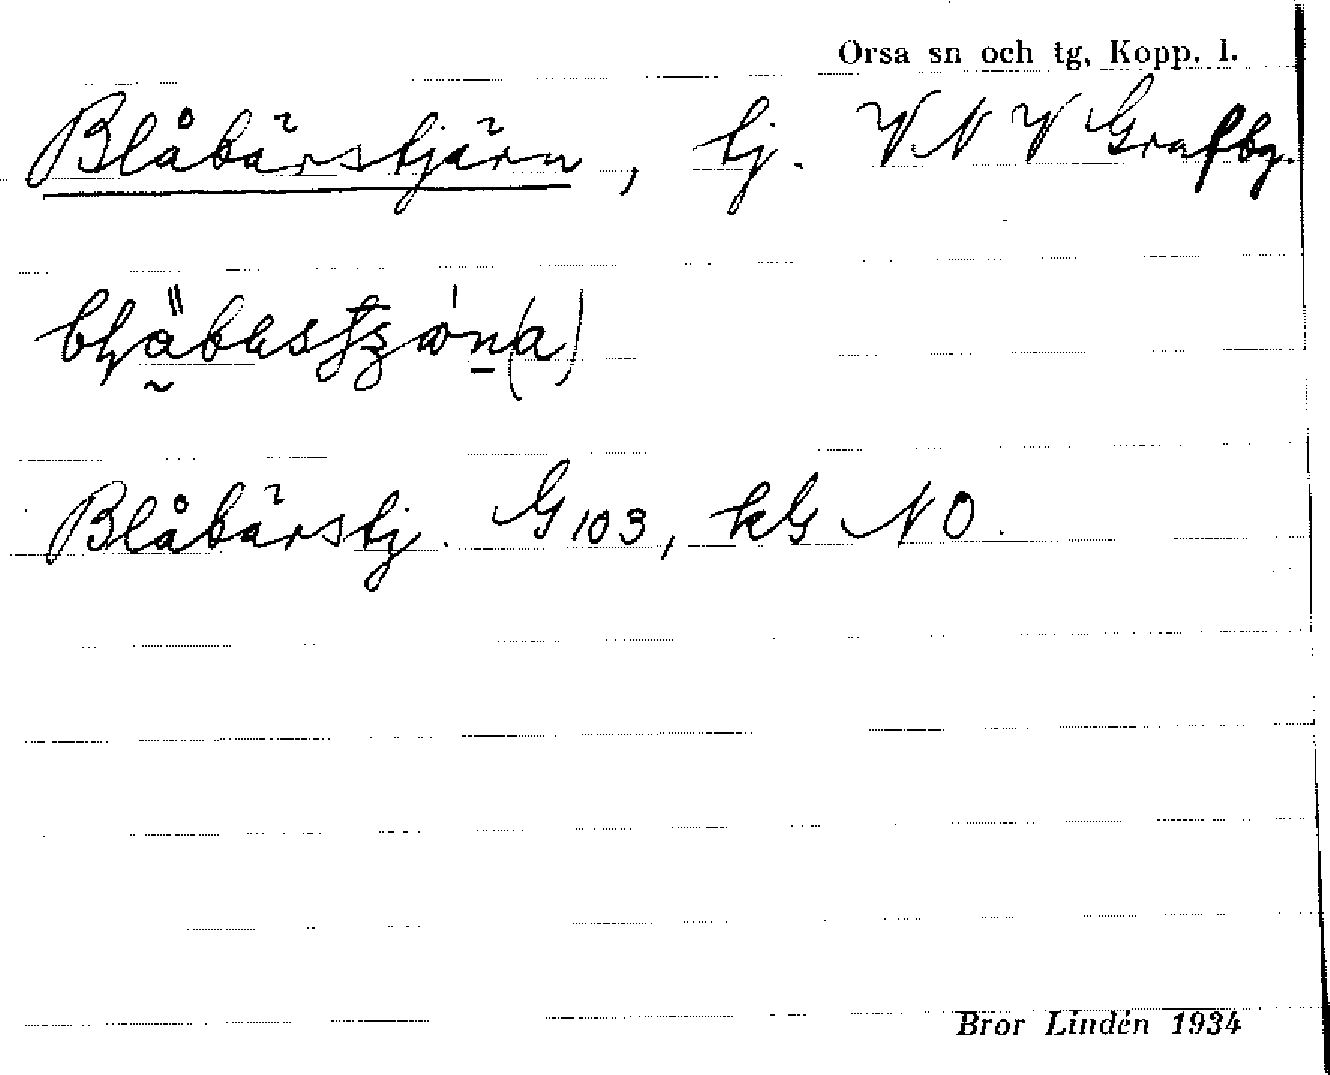 Orsa sn och tg, Kopp. l.
Blåbärstjärn, tj. VNV Grafbg.
Blåbärstj. G 103, kG NO.
Bror Lindén 1934